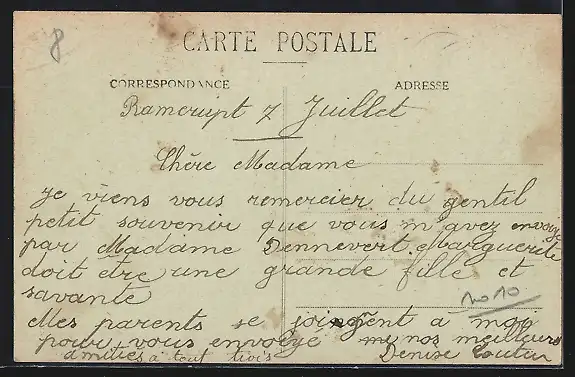 8
CARTE POSTALE
CORRESPONDANCE
ADRESSE
Ramerupt 7 Juillet
Chère Madame
Je viens vous remercier du gentil
petit souvenir que vous m'avez envoyé
par Madame Dennevert Marguerite
doit être une grande fille et
savante
Mes parents se joingent a moi
pour vous envoyé nos meilleurs
amitiés a tout trois
Denise